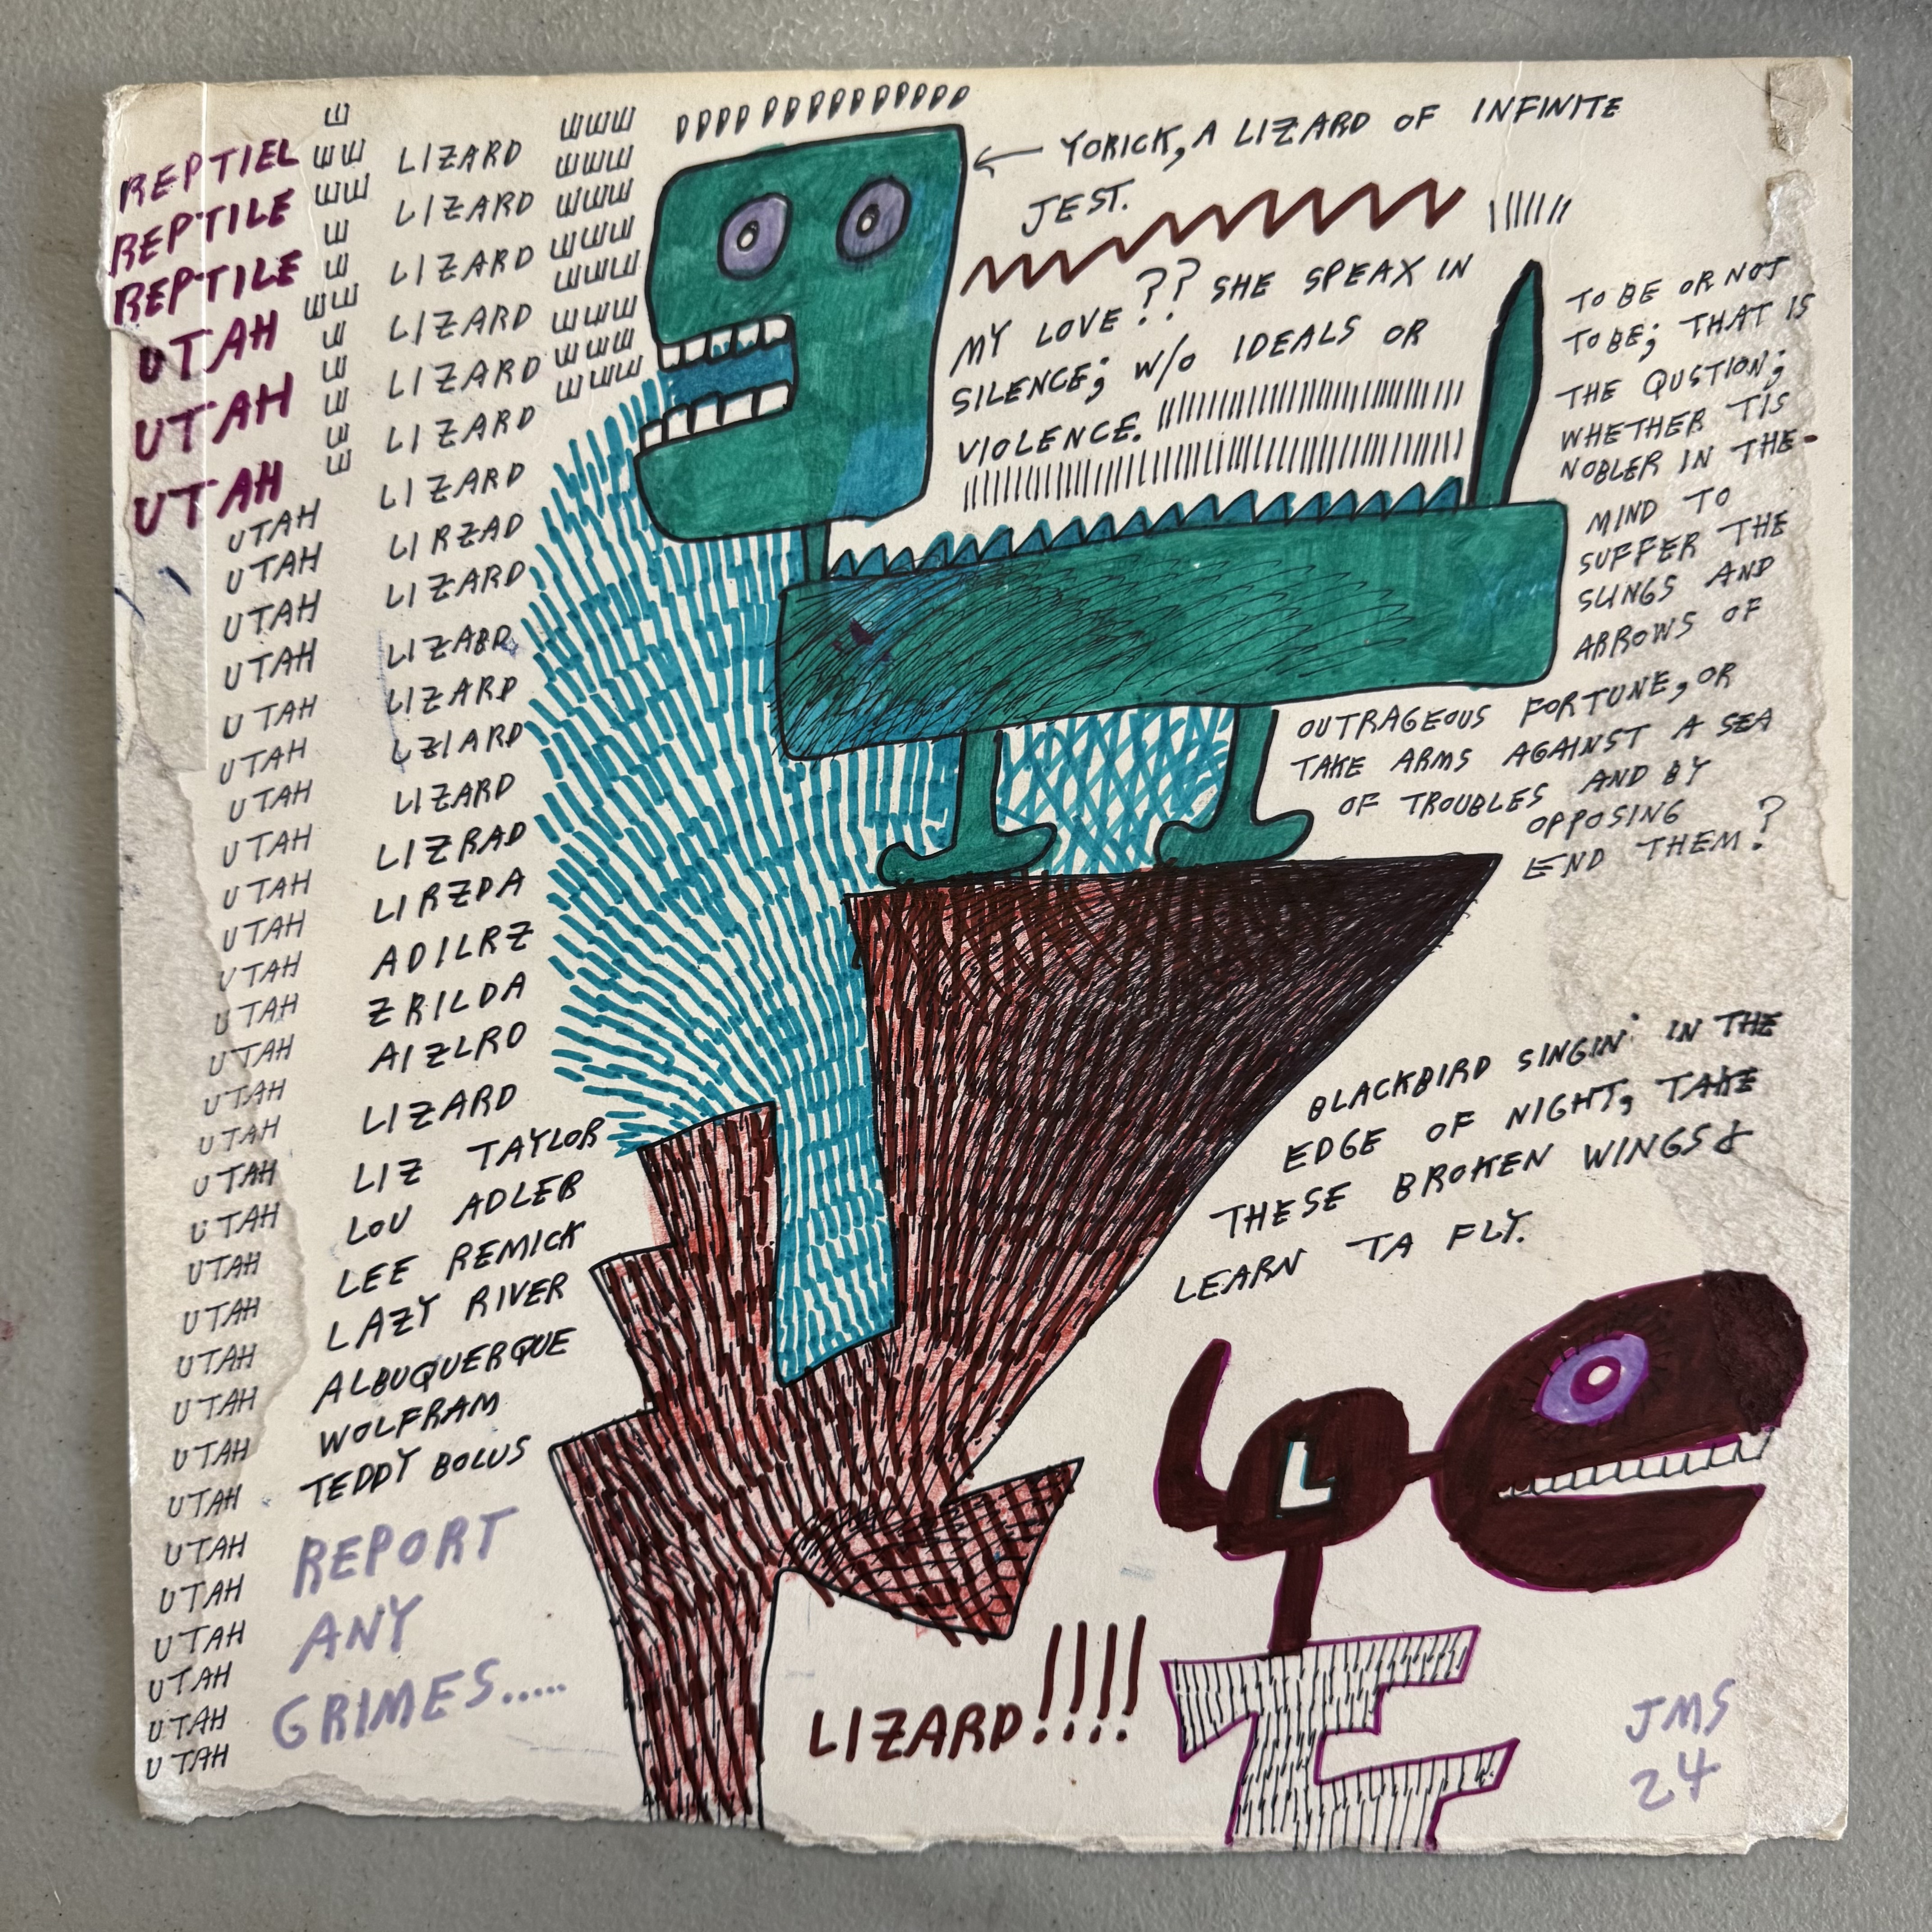 REPTIEL
REPTILE
REPTILE
UTAH
UTAH
UTAH
UTAH
UTAH
UTAH
UTAH
UTAH
UTAH
UTAH
UTAH
UTAH
UTAH
UTAH
UTAH
UTAH
UTAH
UTAH
UTAH
UTAH
UTAH
UTAH
UTAH
UTAH
UTAH
UTAH
UTAH
UTAH
UTAH
UTAH
UTAH
UTAH
LIZARD
LIZARD
LIZARD
LIZARD
LIZARD
LIZARD
LIZARD
LIRZAD
LIZARD
LIZARD
LIZARD
LZIARD
LIZARD
LIZRAD
LIRZDA
ADILRZ
ZRILDA
AIZLRD
LIZARD
LIZ TAYLOR
LOU ADLER
LEE REMICK
LAZY RIVER
ALBUQUERQUE
WOLFRAM
TEDDY BOLUS
REPORT
ANY
GRIMES.....
YORICK, A LIZARD OF INFINITE
JEST.
MY LOVE?? SHE SPEAX IN
SILENCE; W/O IDEALS OR
VIOLENCE.
TO BE OR NOT
TO BE; THAT IS
THE QUSTION;
WHETHER TIS
NOBLER IN THE-
MIND TO
SUFFER THE
SLINGS AND
ARROWS OF
OUTRAGEOUS FORTUNE, OR
TAKE ARMS AGAINST A SEA
OF TROUBLES AND BY
OPPOSING
END THEM?
BLACKBIRD SINGIN' IN THE
EDGE OF NIGHT, TAKE
THESE BROKEN WINGS &
LEARN TA FLY.
L
LIZARD!!!!
JMS
24